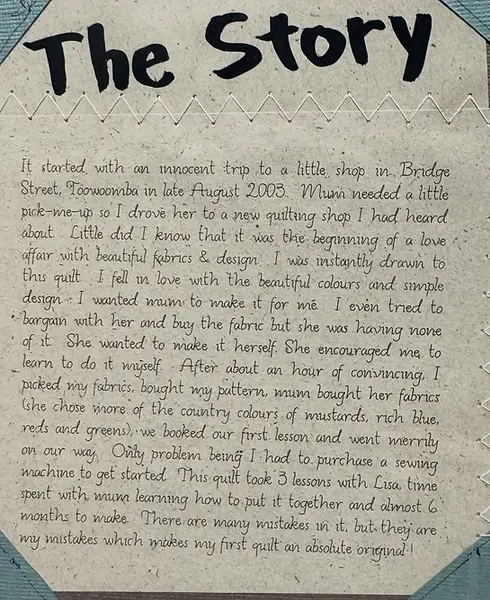 The Story
It started with an innocent trip to a little shop in Bridge
Street, Toowoomba in late August 2003. Mum needed a little
pick-me-up so I drove her to a new quilting shop I had heard
about. Little did I know that it was the beginning of a love
affair with beautiful fabrics & design. I was instantly drawn to
this quilt. I fell in love with the beautiful colours and simple
design. I wanted mum to make it for me. I even tried to
bargain with her and buy the fabric but she was having none
of it. She wanted to make it herself. She encouraged me to
learn to do it myself. After about an hour of convincing, I
picked my fabrics, bought my pattern, mum bought her fabrics
(she chose more of the country colours of mustards, rich blue,
reds and greens), we booked our first lesson and went merrily
on our way. Only problem being I had to purchase a sewing
machine to get started. This quilt took 3 lessons with Lisa, time
spent with mum learning how to put it together and almost 6
months to make. There are many mistakes in it, but they are
my mistakes which makes my first quilt an absolute original!